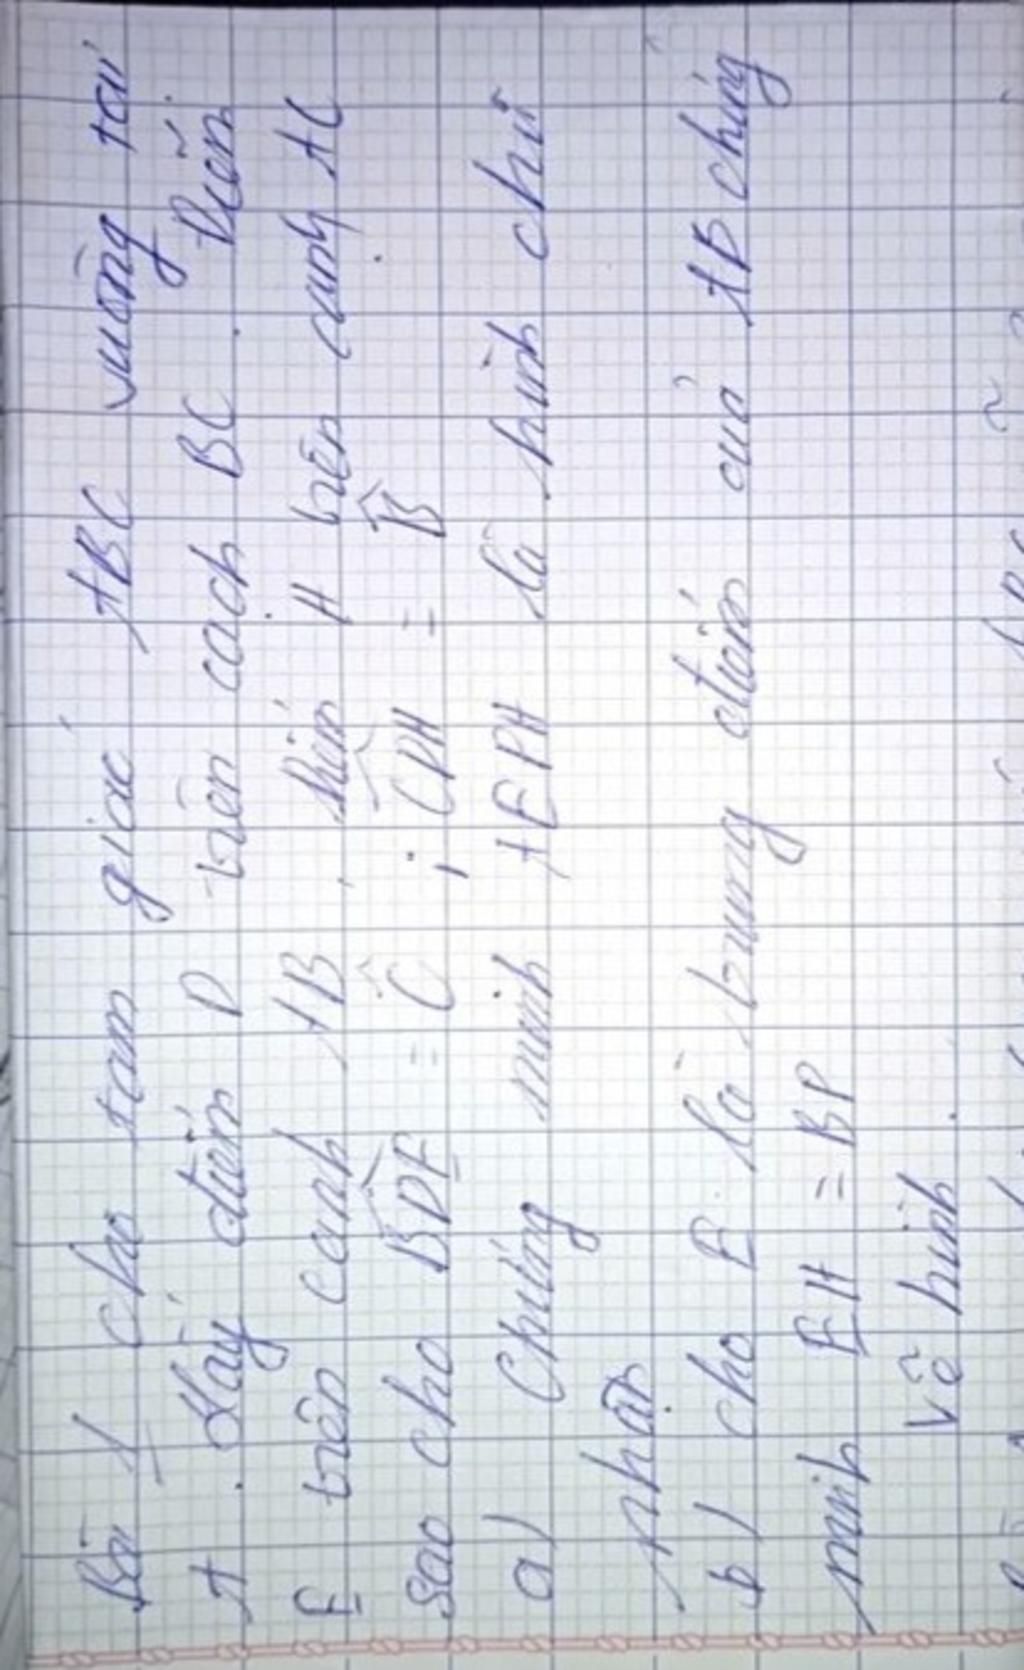 Bài 1 cho tam giác ABC vuông tại
A. Lấy điểm D trên cạch BC. Điểm
E trên cạnh AB, H trên cạnh AC
sao cho BDE = Ĉ ; CDH = B̂
a) Chứng minh AEDH là hình chữ
nhật
b) cho E là trung điểm của AB chứng
minh EH = BD
Vẽ hình.